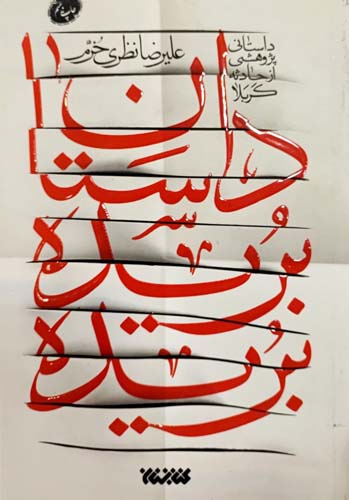 چاپ
علیرضا نظری خرم
داستانی
پژوهشی
از حادثه
کربلا
داستان
بریده
بریده
کتابستان